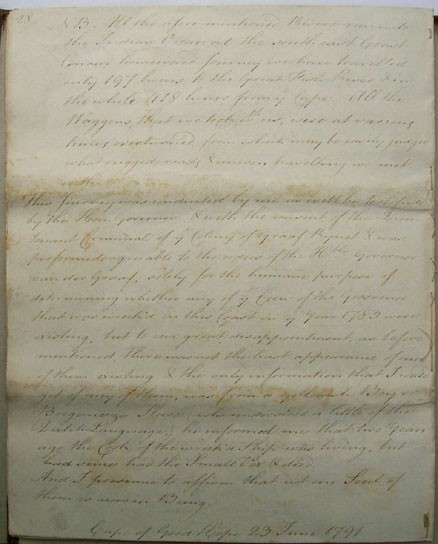 28
NB. All the afore mentioned Rivers run into
the Indian Ocean at the south east Coast
homeward Journey we have travelled
only 197 hours to the Great Fish River & in
the whole 448 hours from ye Cape. All the
Waggons that we took with us, were at various
times overturned from which may be easily judged
what rugged roads & uneven travelling we met
with
This Journey was conducted by me as well
by the Hon. Governor & with the consent of the
Criminal of ye Colony of Graaf Rynet & was
performed agreeable to the of the Hble Governor
van der Graaf, solely for the humane purpose of
determining whether any of ye Crew of the Grosvenor
that was wreck'd on this Coast in ye Year 1783 were
existing, but to our great disappointment, as before
mentioned, there was not the least appearance of one
of them existing & the only information that I could
get of any of them, was from a
Slave who understood a little of the
Dutch Language; he informed me that two Years
ago the Cook of the wreck'd Ship was living, but
had since had the Small Pox & died
And I presume to affirm that not one Soul of
them is now in Being.
Cape of Good Hope 23 June 1791